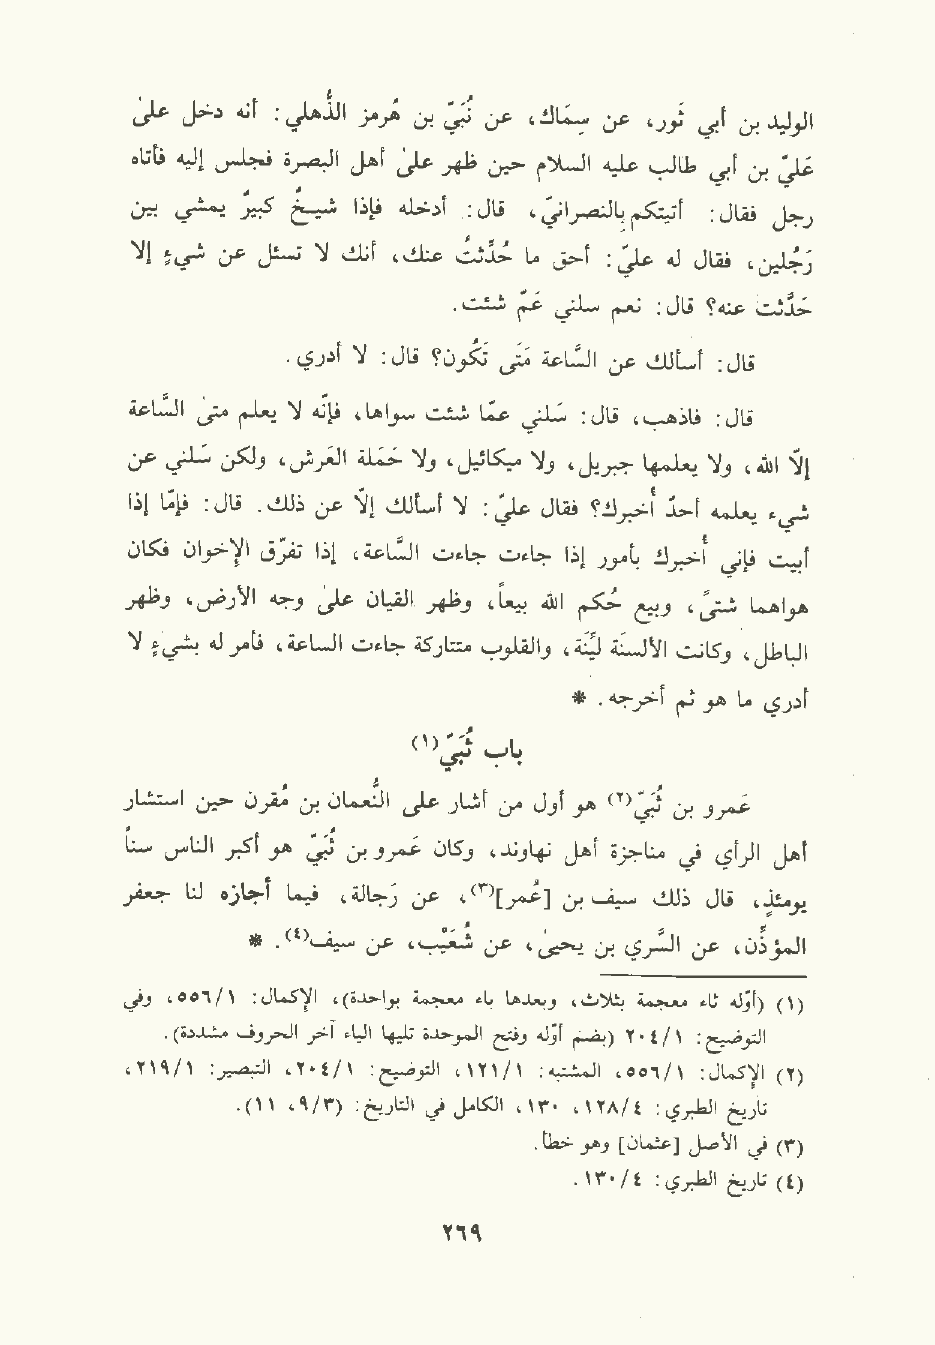 الوليد بن أبي ثَور، عن سِمَاك، عن ثُبَيّ بن هُرمز الذُّهلي: أنه دخل على
عَليّ بن أبي طالب عليه السلام حين ظهر على أهل البصرة فجلس إليه فأتاه
رجل فقال: أتيتكم بالنصرانيّ، قال: أدخله فإذا شيخٌ كبيرٌ يمشي بين
رَجُلين، فقال له عليّ: أحق ما حُدِّثتُ عنك، أنك لا تسئل عن شيءٍ إلا
حَدَّثت عنه؟ قال: نعم سلني عَمّ شئت.
قال: أسألك عن السَّاعة مَتَى تَكُون؟ قال: لا أدري.
قال: فاذهب، قال: سَلني عمّا شئت سواها، فإنّه لا يعلم متىٰ السَّاعة
إلاّ الله، ولا يعلمها جبريل، ولا ميكائيل، ولا حَمَلة العَرش، ولكن سَلني عن
شيء يعلمه أحدٌ أخبرك؟ فقال عليّ: لا أسألك إلاّ عن ذلك. قال: فإمّا إذا
أبيت فإني أُخبرك بأمور إذا جاءت جاءت السَّاعة، إذ تفرّق الإخوان فكان
هواهما شتىّ، وبيع حُكم الله بيعاً، وظهر القيان على وجه الأرض، وظهر
الباطل، وكانت الألسنَة لَيِّنَة، والقلوب متتاركة جاءت الساعة، فأمر له بشيءٍ لا
أدري ما هو ثم أخرجه. *
باب ثُبَيّ(١)
عَمرو بن ثُبَيّ(٢) هو أول من أشار على النُّعمان بن مُقرن حين استشار
أهل الرأي في مناجزة أهل نهاوند، وكان عَمرو بن ثُبَيّ هو أكبر الناس سناً
يومئذٍ، قال ذلك سيف بن [عُمر](٣)، عن رَجالة، فيما أجازه لنا جعفر
المؤذِّن، عن السَّري بن يحيىٰ، عن شُعَيْب، عن سيف(٤). *
(١) (أوّله ثاء معجمة بثلاث، وبعدها باء معجمة بواحدة)، الإكمال: ٥٥٦/١، وفي
التوضيح: ٢٠٤/١ (بضم أوّله وفتح الموحدة تليها الياء آخر الحروف مشددة).
(٢) الإكمال: ٥٥٦/١، المشتبه: ١٢١/١، التوضيح: ٢٠٤/١، التبصير: ٢١٩/١،
تاريخ الطبري: ١٢٨/٤، ١٣٠، الكامل في التاريخ: (٩/٣، ١١).
(٣) في الأصل [عثمان] وهو خطأ.
(٤) تاريخ الطبري: ١٣٠/٤.
٢٦٩